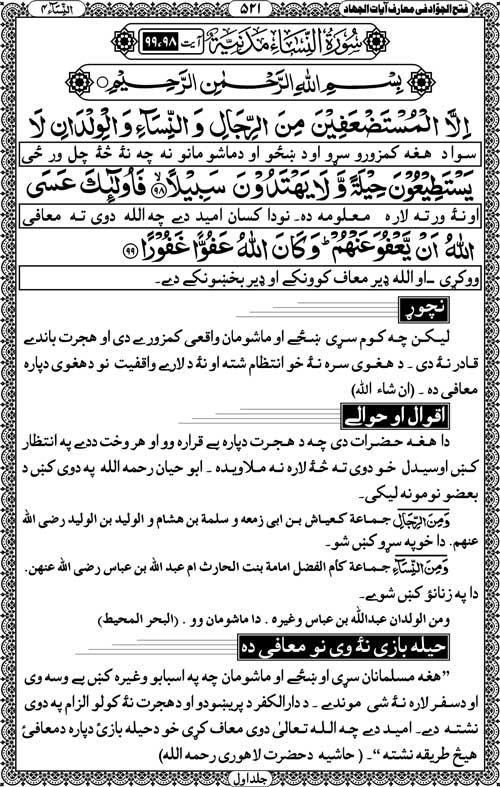 فتح الجوّاد فی معارف آیات الجهاد ۵۲۱ النِّسَاء ۴
سُوْرَةُ النِّسَاءِ مَدَنِیَّةٌ آیت ۹۸، ۹۹
بِسْمِ اللهِ الرَّحْمٰنِ الرَّحِیْمِ
اِلَّا الْمُسْتَضْعَفِیْنَ مِنَ الرِّجَالِ وَالنِّسَآءِ وَالْوِلْدَانِ لَا
سواد هغه کمزورو سړو او د ښځو او د ماشومانو نه چه نۀ څۀ چل ور ځی
یَسْتَطِیْعُوْنَ حِیْلَةً وَّ لَا یَهْتَدُوْنَ سَبِیْلًا ﴿۹۸﴾ فَاُولٰٓئِكَ عَسَی
او نۀ ورته لاره معلومه ده۔ نو دا کسان امید دے چه الله دوی ته معافی
اللهُ اَنْ یَّعْفُوَ عَنْهُمْ ؕ وَ كَانَ اللهُ عَفُوًّا غَفُوْرًا ﴿۹۹﴾
ووکړی ۔ او الله ډیر معاف کوونکے او ډیر بخښونکے دے۔
نچوړ
لیکن چه کوم سړی ښځے او ماشومان واقعی کمزورے دی او هجرت باندے
قادر نۀ دی ۔ د هغوی سره نۀ خو انتظام شته او نۀ د لارے واقفیت نو د هغوی دپاره
معافی ده ۔ (ان شاء الله)
اقوال او حوالے
دا هغه حضرات دی چه د هجرت دپاره بے قراره وو او هر وخت د دے په انتظار
کښ اوسیدل خو دوی ته څۀ لاره نه ملاویده ۔ ابو حیان رحمه الله په دوی کښ د
بعضو نومونه لیکی۔
وَمِنَ الرِّجَالِ جماعة کعیاش بن ابی زمعه و سلمة بن هشام و الولید بن الولید رضی الله
عنهم. دا خو په سړو کښ شو۔
وَمِنَ النِّسَاءِ جماعة کام الفضل امامة بنت الحارث ام عبد الله بن عباس رضی الله عنهن.
دا په زنانؤ کښ شوے۔
ومن الولدان عبدالله بن عباس وغیره . دا ماشومان وو . (البحر المحیط)
حیله بازی نۀ وی نو معافی ده
”هغه مسلمانان سړی او ښځے او ماشومان چه په اسبابو وغیره کښ بے وسه وی
او د سفر لاره نۀ شی موندے ۔ د دارالکفر د پریښودو او د هجرت نۀ کولو الزام په دوی
نشته دے۔ امید دے چه الله تعالیٰ دوی معاف کړی خو د حیله بازئ دپاره د معافئ
هیڅ طریقه نشته“۔ (حاشیه د حضرت لاهوری رحمه الله)
جلد اول